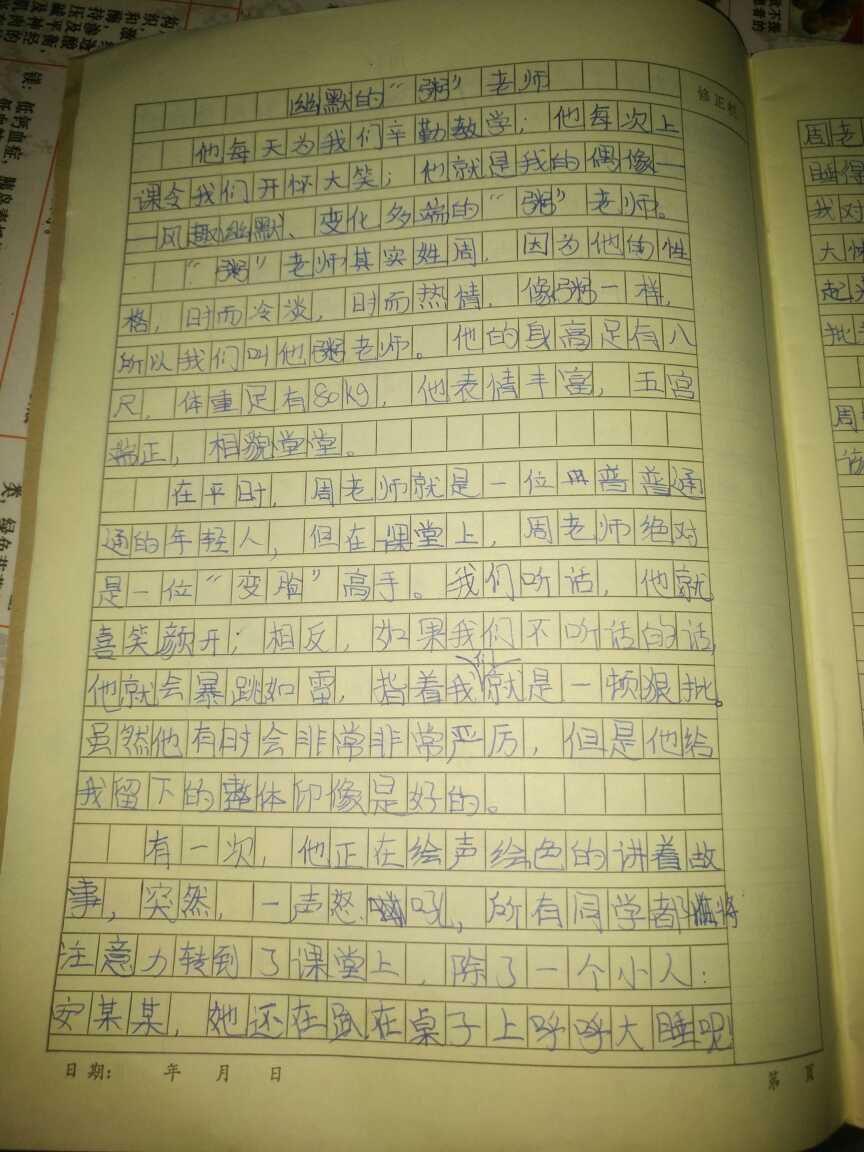 幽默的“粥”老师
修正栏
他每天为我们辛勤教学；他每次上
课令我们开怀大笑；他就是我的偶像—
—风趣幽默、变化多端的“粥”老师。
“粥”老师其实姓周，因为他的性
格，时而冷淡，时而热情，像粥一样，
所以我们叫他粥老师。他的身高足有八
尺，体重足有80kg，他表情丰富，五官
端正，相貌堂堂。
在平时，周老师就是一位普普通
通的年轻人，但在课堂上，周老师绝对
是一位“变脸”高手。我们听话，他就
喜笑颜开；相反，如果我们不听话的话，
他就会暴跳如雷，指着我们就是一顿狠批。
虽然他有时会非常非常严厉，但是他给
我留下的整体印像是好的。
有一次，他正在绘声绘色的讲着故
事，突然，一声怒吼，所有同学都将
注意力转到了课堂上，除了一个小人：
安某某，她还在趴在桌子上呼呼大睡呢！
日期： 年 月 日
第 页
周老
睡得
我对
大
起
批
周
该